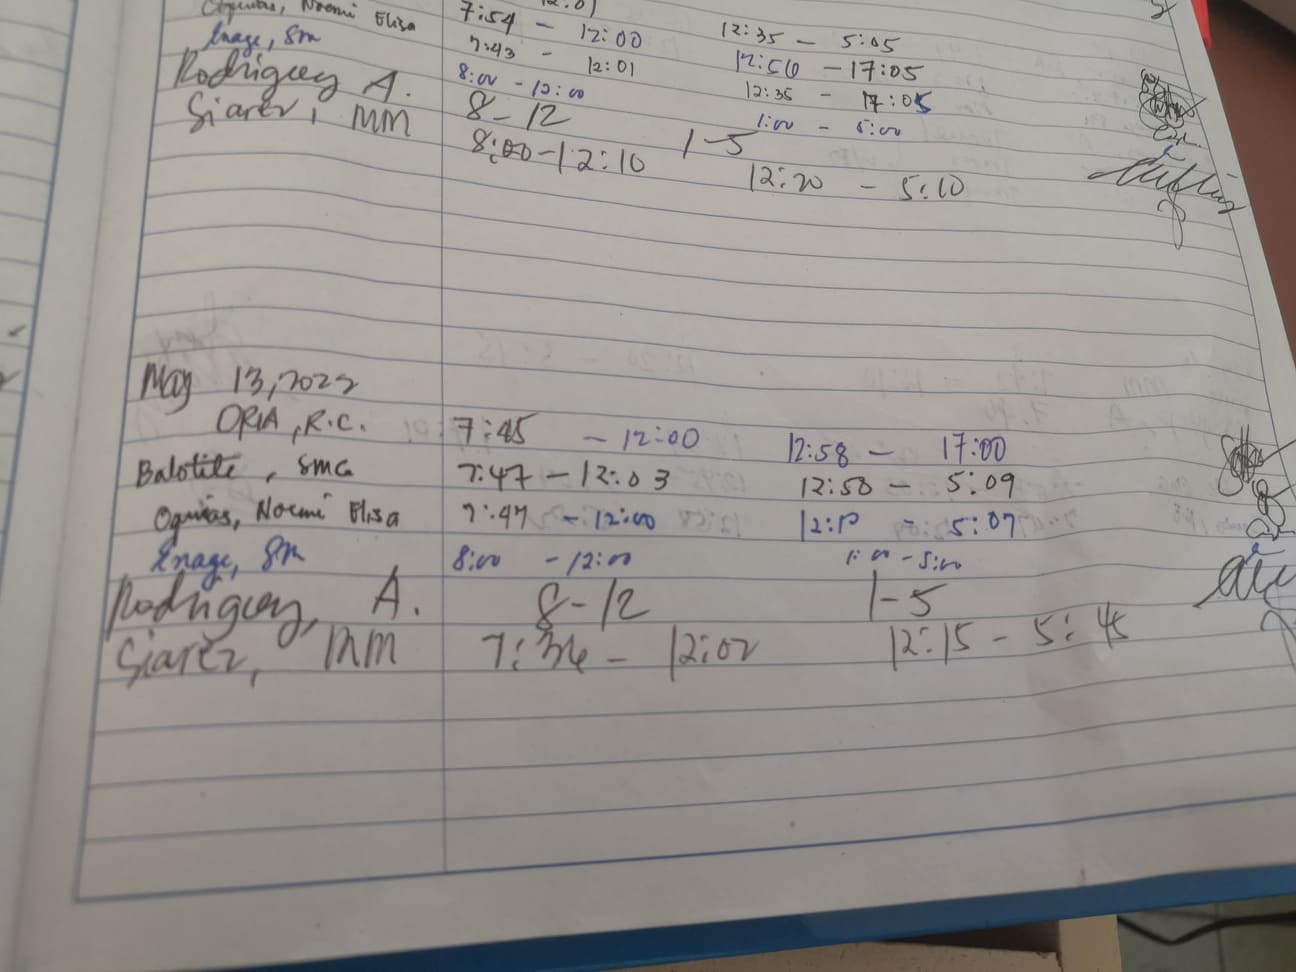 12:01
Oquias, Noemi Elisa 7:54 - 12:00 12:35 - 5:05
Enage, SM 7:43 - 12:01 12:50 - 17:05
Rodriguez A. 8:00 - 12:00 12:35 - 17:05
Siarez, MM 8 - 12 1:00 - 5:00
8:00 - 12:10 1-5
12:20 - 5:10
May 13, 2022
ORIA, R.C. 7:45 - 12:00 12:58 - 17:00
Balotite, SMG 7:47 - 12:03 12:50 - 5:09
Oquias, Noemi Elisa 7:47 - 12:00 5:07
Enage, SM 8:00 - 12:00 1:00 - 5:00
Rodriguez, A. 8-12 1-5
Siarez, MM 7:36 - 12:02 12:15 - 5:45